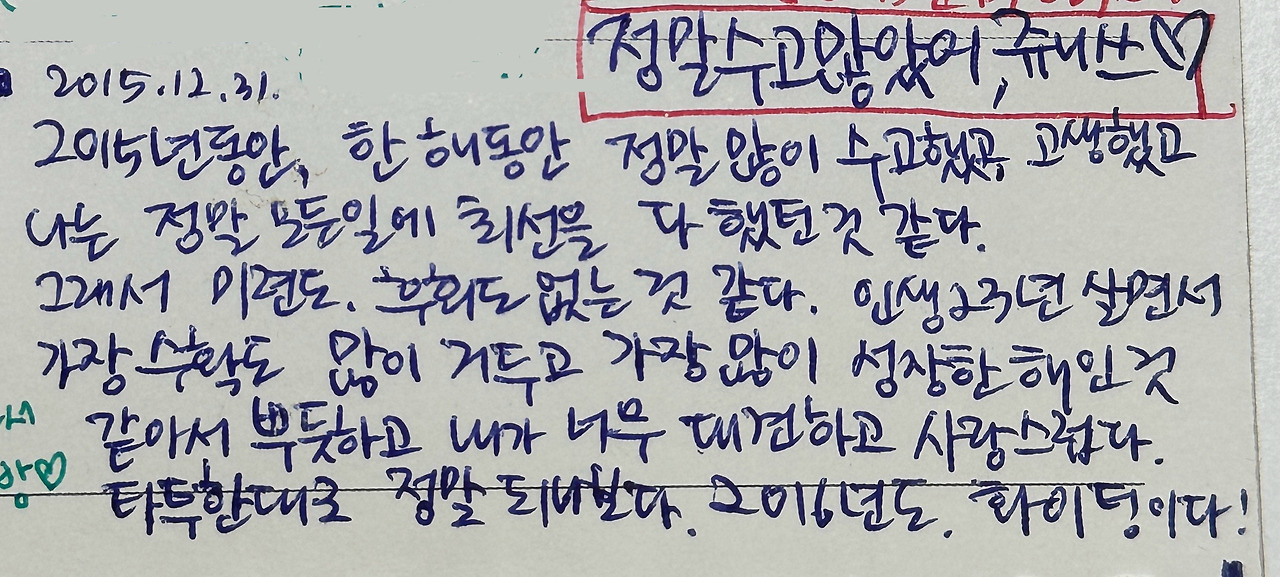 정말수고많았어, 쥬니쓰♡
2015.12.31.
2015년동안, 한 해동안 정말 많이 수고했고, 고생했고
나는 정말 모든일에 최선을 다 했던 것 같다.
그래서 미련도. 후회도 없는 것 같다. 인생 23년 살면서
가장 수확도 많이 거두고 가장 많이 성장한 해인 것
같아서 뿌듯하고 내가 너무 대견하고 사랑스럽다.
타투한대로 정말 되나보다. 2016년도. 화이팅이다!